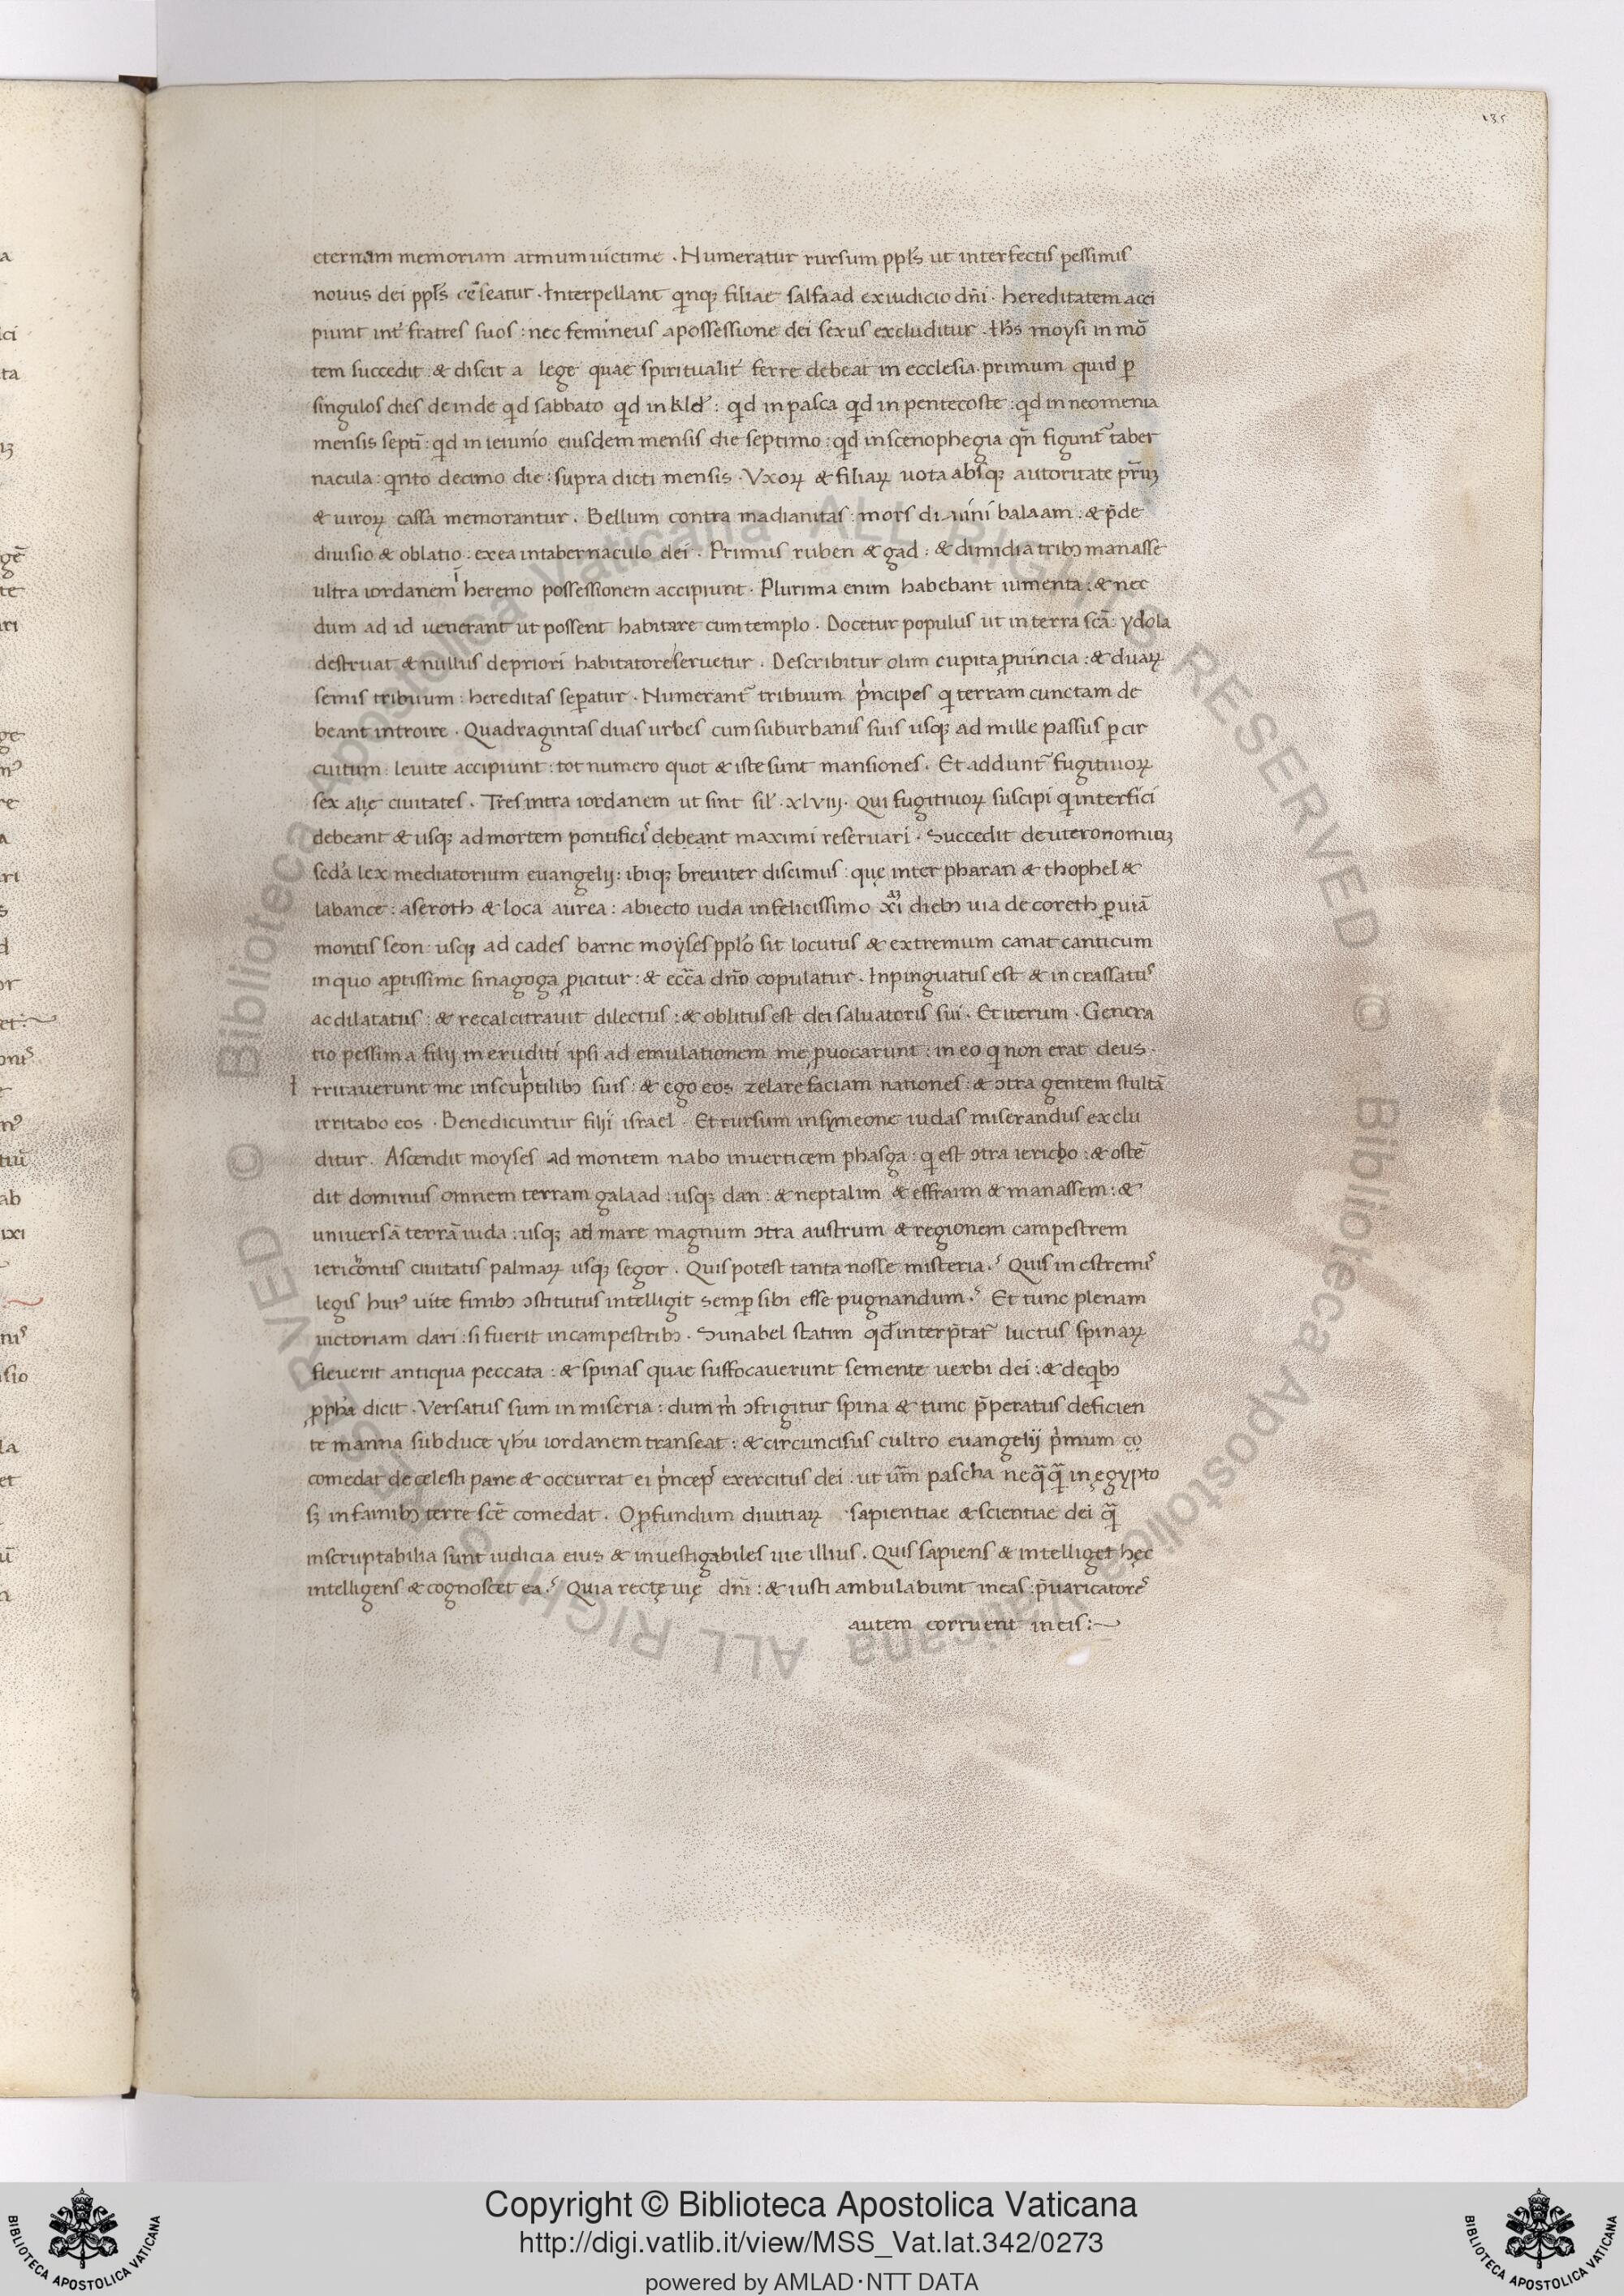 135
eternam memoriam armum uictime . Numeratur rursum ppl̄s ut interfectis pessimis
nouus dei ppl̄s cēseatur . Interpellant qinqꝫ filiae salfaad ex iudicio dn̄i . hereditatem acci
piunt int̄ fratres suos : nec femineus a possessione dei sexus excluditur . Ih̄s moysi in mō
tem succedit : & discit a lege quae spiritualit̄ ferre debeat in ecclesia . primum quid ꝑ
singulos dies deinde qd sabbato qd in kld̄ : qd in pasca qd in pentecoste : qd in neomenia
mensis septī : qd in ieiunio eiusdem mensis die septimo : qd in scenophegia qn̄ figunt᷒ taber
nacula : qinto decimo die : supra dicti mensis . Vxoꝝ & filiaꝝ uota absqꝫ autoritate pr̄ꝫ
& uiroꝝ cassa memorantur . Bellum contra madianitas : mors diuini balaam : & p̄de
diuisio & oblatio : ex ea in tabernaculo dei . Primus ruben & gad : & dimidia tribꝫ manasse
ultra iordanem ī heremo possessionem accipiunt . Plurima enim habebant iumenta : & nec
dum ad id uenerant ut possent habitare cum templo . Docetur populus ut in terra scā : ydola
destruat & nullus de priori habitatore seruetur . Describitur olim cupita ꝓuincia : & duaꝝ
semis tribuum : hereditas seꝑatur . Numerant᷒ tribuum pͥncipes q terram cunctam de
beant introire . Quadragintas duas urbes cum suburbanis suis usqꝫ ad mille passus ꝑ cir
cuitum : leuite accipiunt : tot numero quot & iste sunt mansiones . Et addunt᷒ fugitiuoꝝ
sex alię ciuitates . Tres intra iordanem ut sint sil̄ . xlviij . Qui fugitiuoꝝ suscipi q interfici
debeant & usqꝫ ad mortem pontificꝰ debeant maximi reseruari . Succedit deuteronomiuꝫ
sed̄a lex mediatorium euangelij : ibiqꝫ breuiter discimus : quę inter pharan & thophel &
labance : aseroth & loca aurea : abiecto iuda infelicissimo xi diebꝫ uia de coreth ꝑ uiā
montis seon : usqꝫ ad cades barne moyses ppl̄o sit locutus & extremum canat canticum
in quo aꝑtissime sinagoga ꝓicitur : & ecc̄a dn̄o copulatur . Inpinguatus est & incrassatꝰ
ac dilatatus : & recalcitrauit dilectus : & oblitus est dei saluatoris sui . Et iterum . Genera
tio pessima filij ineruditi ipsi ad emulationem me ꝓuocarunt : in eo q non erat deus .
I rritauerunt me in scuptilibꝫ suis : & ego eos zelare faciam nationes : & ↄtra gentem stultā
irritabo eos . Benedicuntur filij israel . Et rursum in symeone iudas miserandus exclu
ditur . Ascendit moyses ad montem nabo in uerticem phasga : q est ↄtra iericho : & ostē
dit dominus omnem terram galaad : usqꝫ dan : & neptalim & effraim & manassem : &
uniuersā terrā iuda : usqꝫ ad mare magnum ↄtra austrum & regionem campestrem
iericontis ciuitatis palmaꝝ usqꝫ segor . Quis potest tanta nosse misteria ? Quis in estremꝰ
legis huiꝰ uite finibꝫ ↄstitutus intelligit semꝑ sibi esse pugnandum ? Et tunc plenam
uictoriam dari : si fuerit in campestribꝫ . Sunabel statim qd interp̄tat᷒ luctus spinaꝝ
fleuerit antiqua peccata : & spinas quae suffocauerunt semente uerbi dei : & de qibꝫ
ꝓph̄a dicit . Versatus sum in miseria : dum m̄ ↄfrigitur spina & tunc p̄peratus deficien
te manna sub duce yh̄u iordanem transeat : & circuncisus cultro euangelij pͥmum co
comedat de celesti pane & occurrat ei pͥncepꝰ exercitus dei . ut ūm pascha neq̄q̄ in ęgypto
sꝫ in fainibꝫ terre scē comedat . O ꝓfundum diuitiaꝝ . sapientiae & scientiae dei q̄
inscruptabilia sunt iudicia eius & inuestigabiles uie illius . Quis sapiens & intelliget hęc
intelligens & cognoscet ea ? Quia rectę uię dn̄i : & iusti ambulabunt in eas : p̄uaricatoreꝰ
autem corruent in eis :~
Copyright © Biblioteca Apostolica Vaticana
http://digi.vatlib.it/view/MSS_Vat.lat.342/0273
powered by AMLAD·NTT DATA